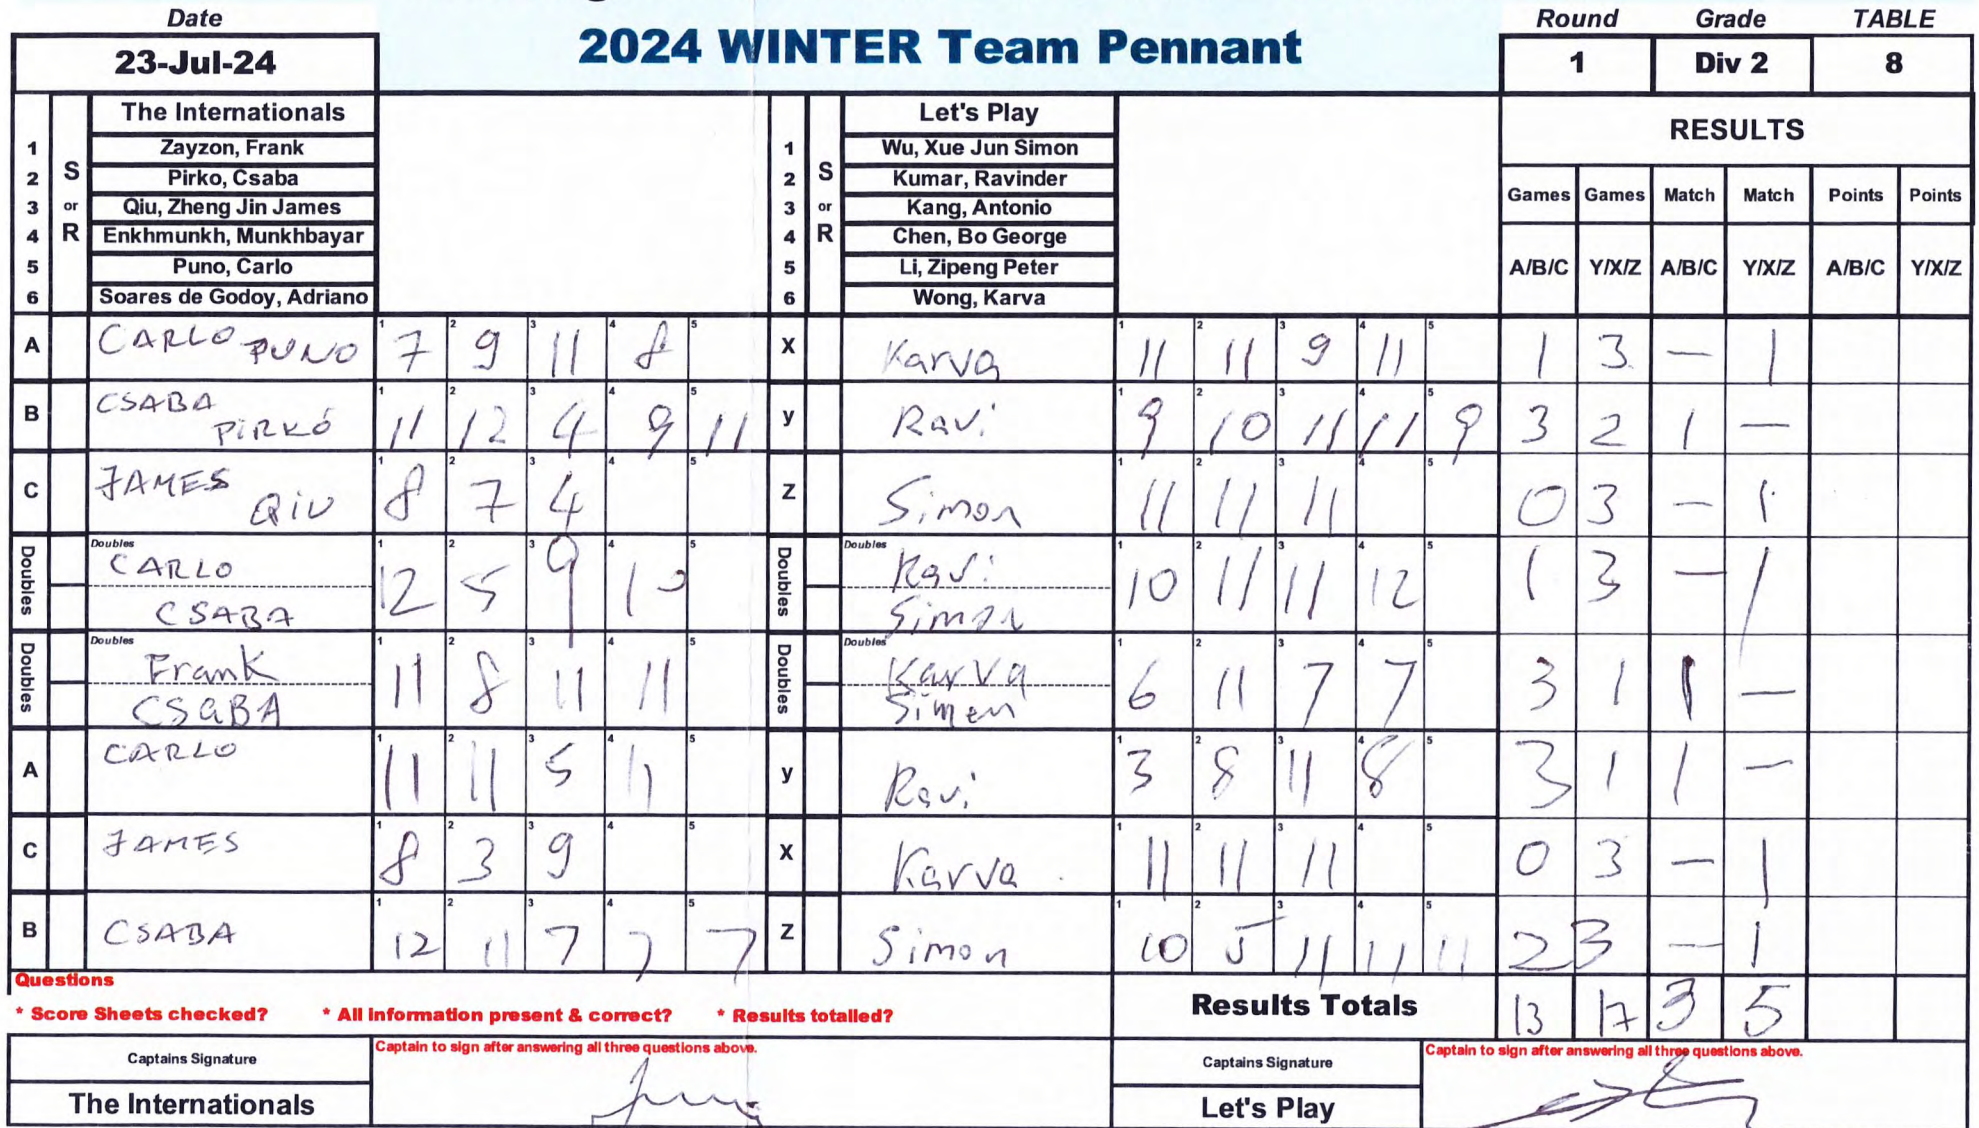 Date
2024 WINTER Team Pennant
Round Grade TABLE
23-Jul-24
1 Div 2 8
The Internationals
Let's Play
RESULTS
1 Zayzon, Frank
2 Pirko, Csaba
3 Qiu, Zheng Jin James
4 Enkhmunkh, Munkhbayar
5 Puno, Carlo
6 Soares de Godoy, Adriano
S or R
1 Wu, Xue Jun Simon
2 Kumar, Ravinder
3 Kang, Antonio
4 Chen, Bo George
5 Li, Zipeng Peter
6 Wong, Karva
S or R
Games Games Match Match Points Points
A/B/C Y/X/Z A/B/C Y/X/Z A/B/C Y/X/Z
A CARLO PUNO 7 9 11 8 X Karva 11 11 9 11 1 3 — 1
B CSABA PIRKÓ 11 12 4 9 11 y Ravi 9 10 11 11 9 3 2 1 —
C JAMES QIU 8 7 4 Z Simon 11 11 11 0 3 — 1
Doubles Doubles CARLO CSABA 12 5 9 10 Doubles Doubles Ravi Simon 10 11 11 12 1 3 — 1
Doubles Doubles Frank CSABA 11 8 11 11 Doubles Doubles Karva Simon 6 11 7 7 3 1 1 —
A CARLO 11 11 5 11 y Ravi 3 8 11 8 3 1 1 —
C JAMES 8 3 9 X Karva 11 11 11 0 3 — 1
B CSABA 12 11 7 7 7 Z Simon 10 5 11 11 11 2 3 — 1
Questions
* Score Sheets checked? * All information present & correct? * Results totalled?
Results Totals 13 17 3 5
Captains Signature
Captain to sign after answering all three questions above.
The Internationals
Captains Signature
Captain to sign after answering all three questions above.
Let's Play